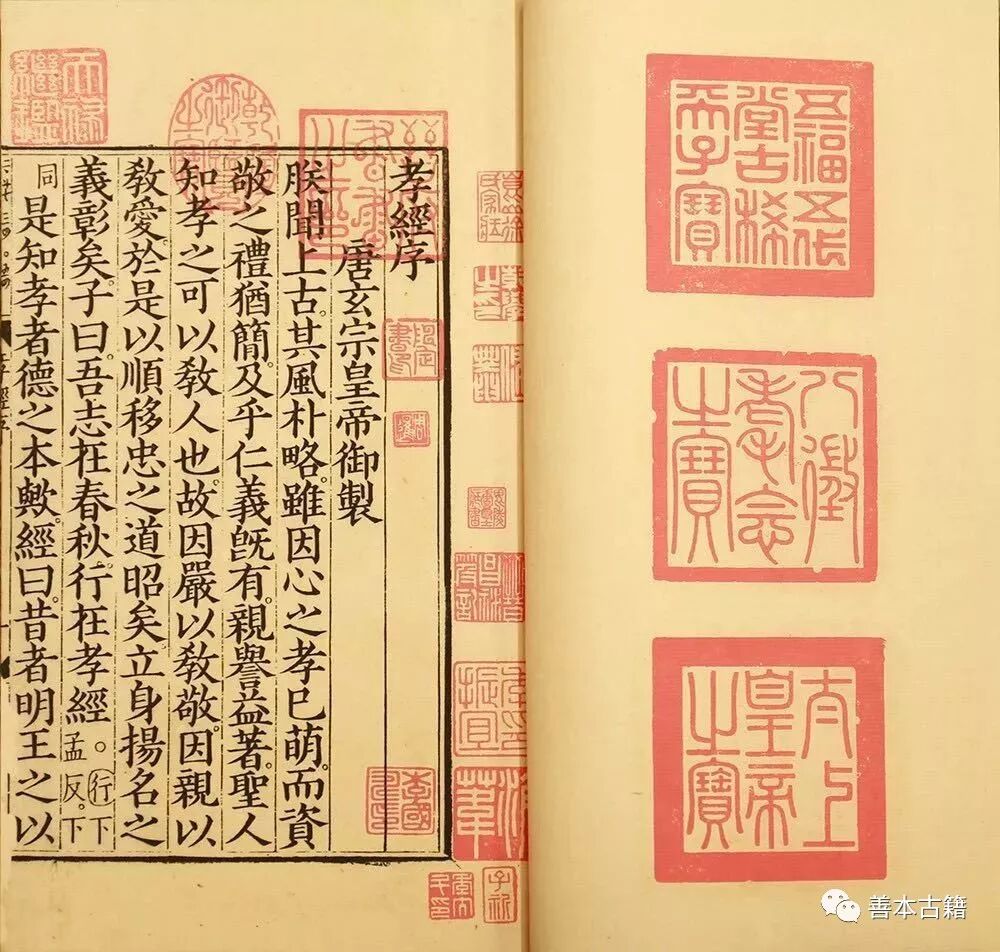 五福五代
堂古稀
天子寶
八徵
耄念
之寶
太上
皇帝
之寶
孝經序
唐玄宗皇帝御製
朕聞上古。其風朴略。雖因心之孝已萌。而資
敬之禮猶簡。及乎仁義旣有。親譽益著。聖人
知孝之可以敎人也。故因嚴以敎敬。因親以
敎愛。於是以順移忠之道昭矣。立身揚名之
義彰矣。子曰。吾志在春秋。行在孝經。行下孟反。下
同是知孝者德之本歟。經曰。昔者明王之以
天祿
繼鑑
乾隆
御覽
之寶
善本古籍